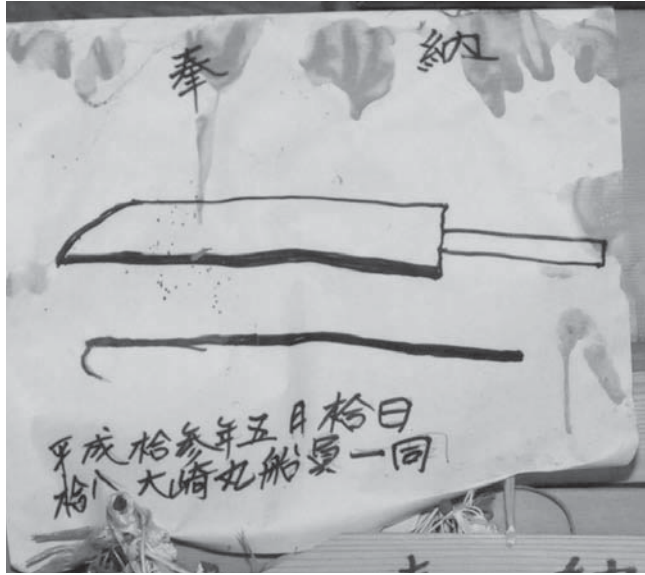 奉納
平成拾参年五月拾日
拾八大崎丸船員一同